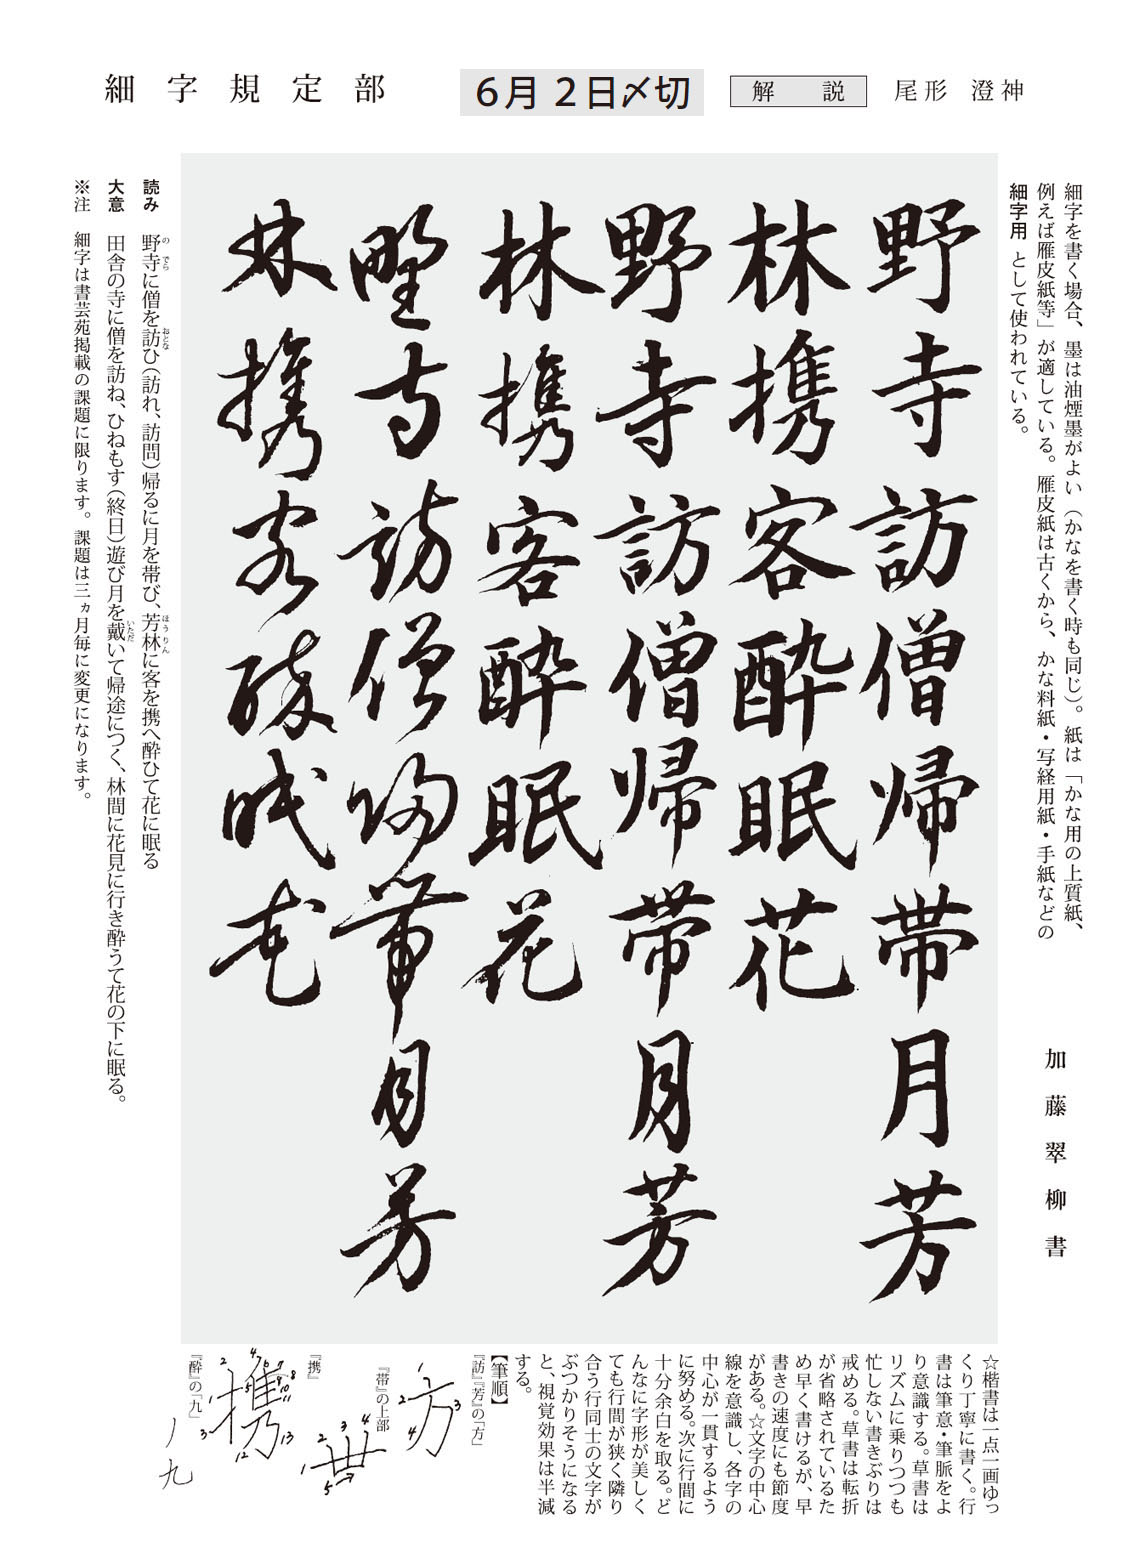 細字規定部
6月2日〆切
解 説
尾形 澄神
細字を書く場合、墨は油煙墨がよい（かなを書く時も同じ）。紙は「かな用の上質紙、
例えば雁皮紙等」が適している。雁皮紙は古くから、かな料紙・写経用紙・手紙などの
細字用 として使われている。
加藤翠柳書
野寺訪僧帰帯月芳
林携客酔眠花
野寺訪僧帰帯月芳
林携客酔眠花
野寺訪僧帰帯月芳
林携客酔眠花
読み 野寺に僧を訪ひ（訪れ、訪問）帰るに月を帯び、芳林に客を携へ酔ひて花に眠る
の でら おとな ほうりん
大意 田舎の寺に僧を訪ね、ひねもす（終日）遊び月を戴いて帰途につく、林間に花見に行き酔うて花の下に眠る。
いただ
※注 細字は書芸苑掲載の課題に限ります。課題は三ヵ月毎に変更になります。
☆楷書は一点一画ゆっ
くり丁寧に書く。行
書は筆意・筆脈をよ
り意識する。草書は
リズムに乗りつつも
忙しない書きぶりは
戒める。草書は転折
が省略されているた
め早く書けるが、早
書きの速度にも節度
がある。☆文字の中心
線を意識し、各字の
中心が一貫するよう
に努める。次に行間に
十分余白を取る。ど
んなに字形が美しく
ても行間が狭く隣り
合う行同士の文字が
ぶつかりそうになる
と、視覚効果は半減
する。
【筆順】
『訪』『芳』の「方」
方 1 2 3 4
『帯』の上部
1 2 3 4 5
『携』
携 1 2 3 4 5 6 7 8 9 10 11 12 13
『酔』の「九」
ノ九